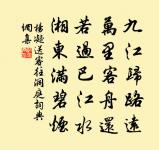 九江歸路遠
萬里客舟還
若過巴江水
湘東滿碧煙
楊凝送客往洞庭詞典
網集